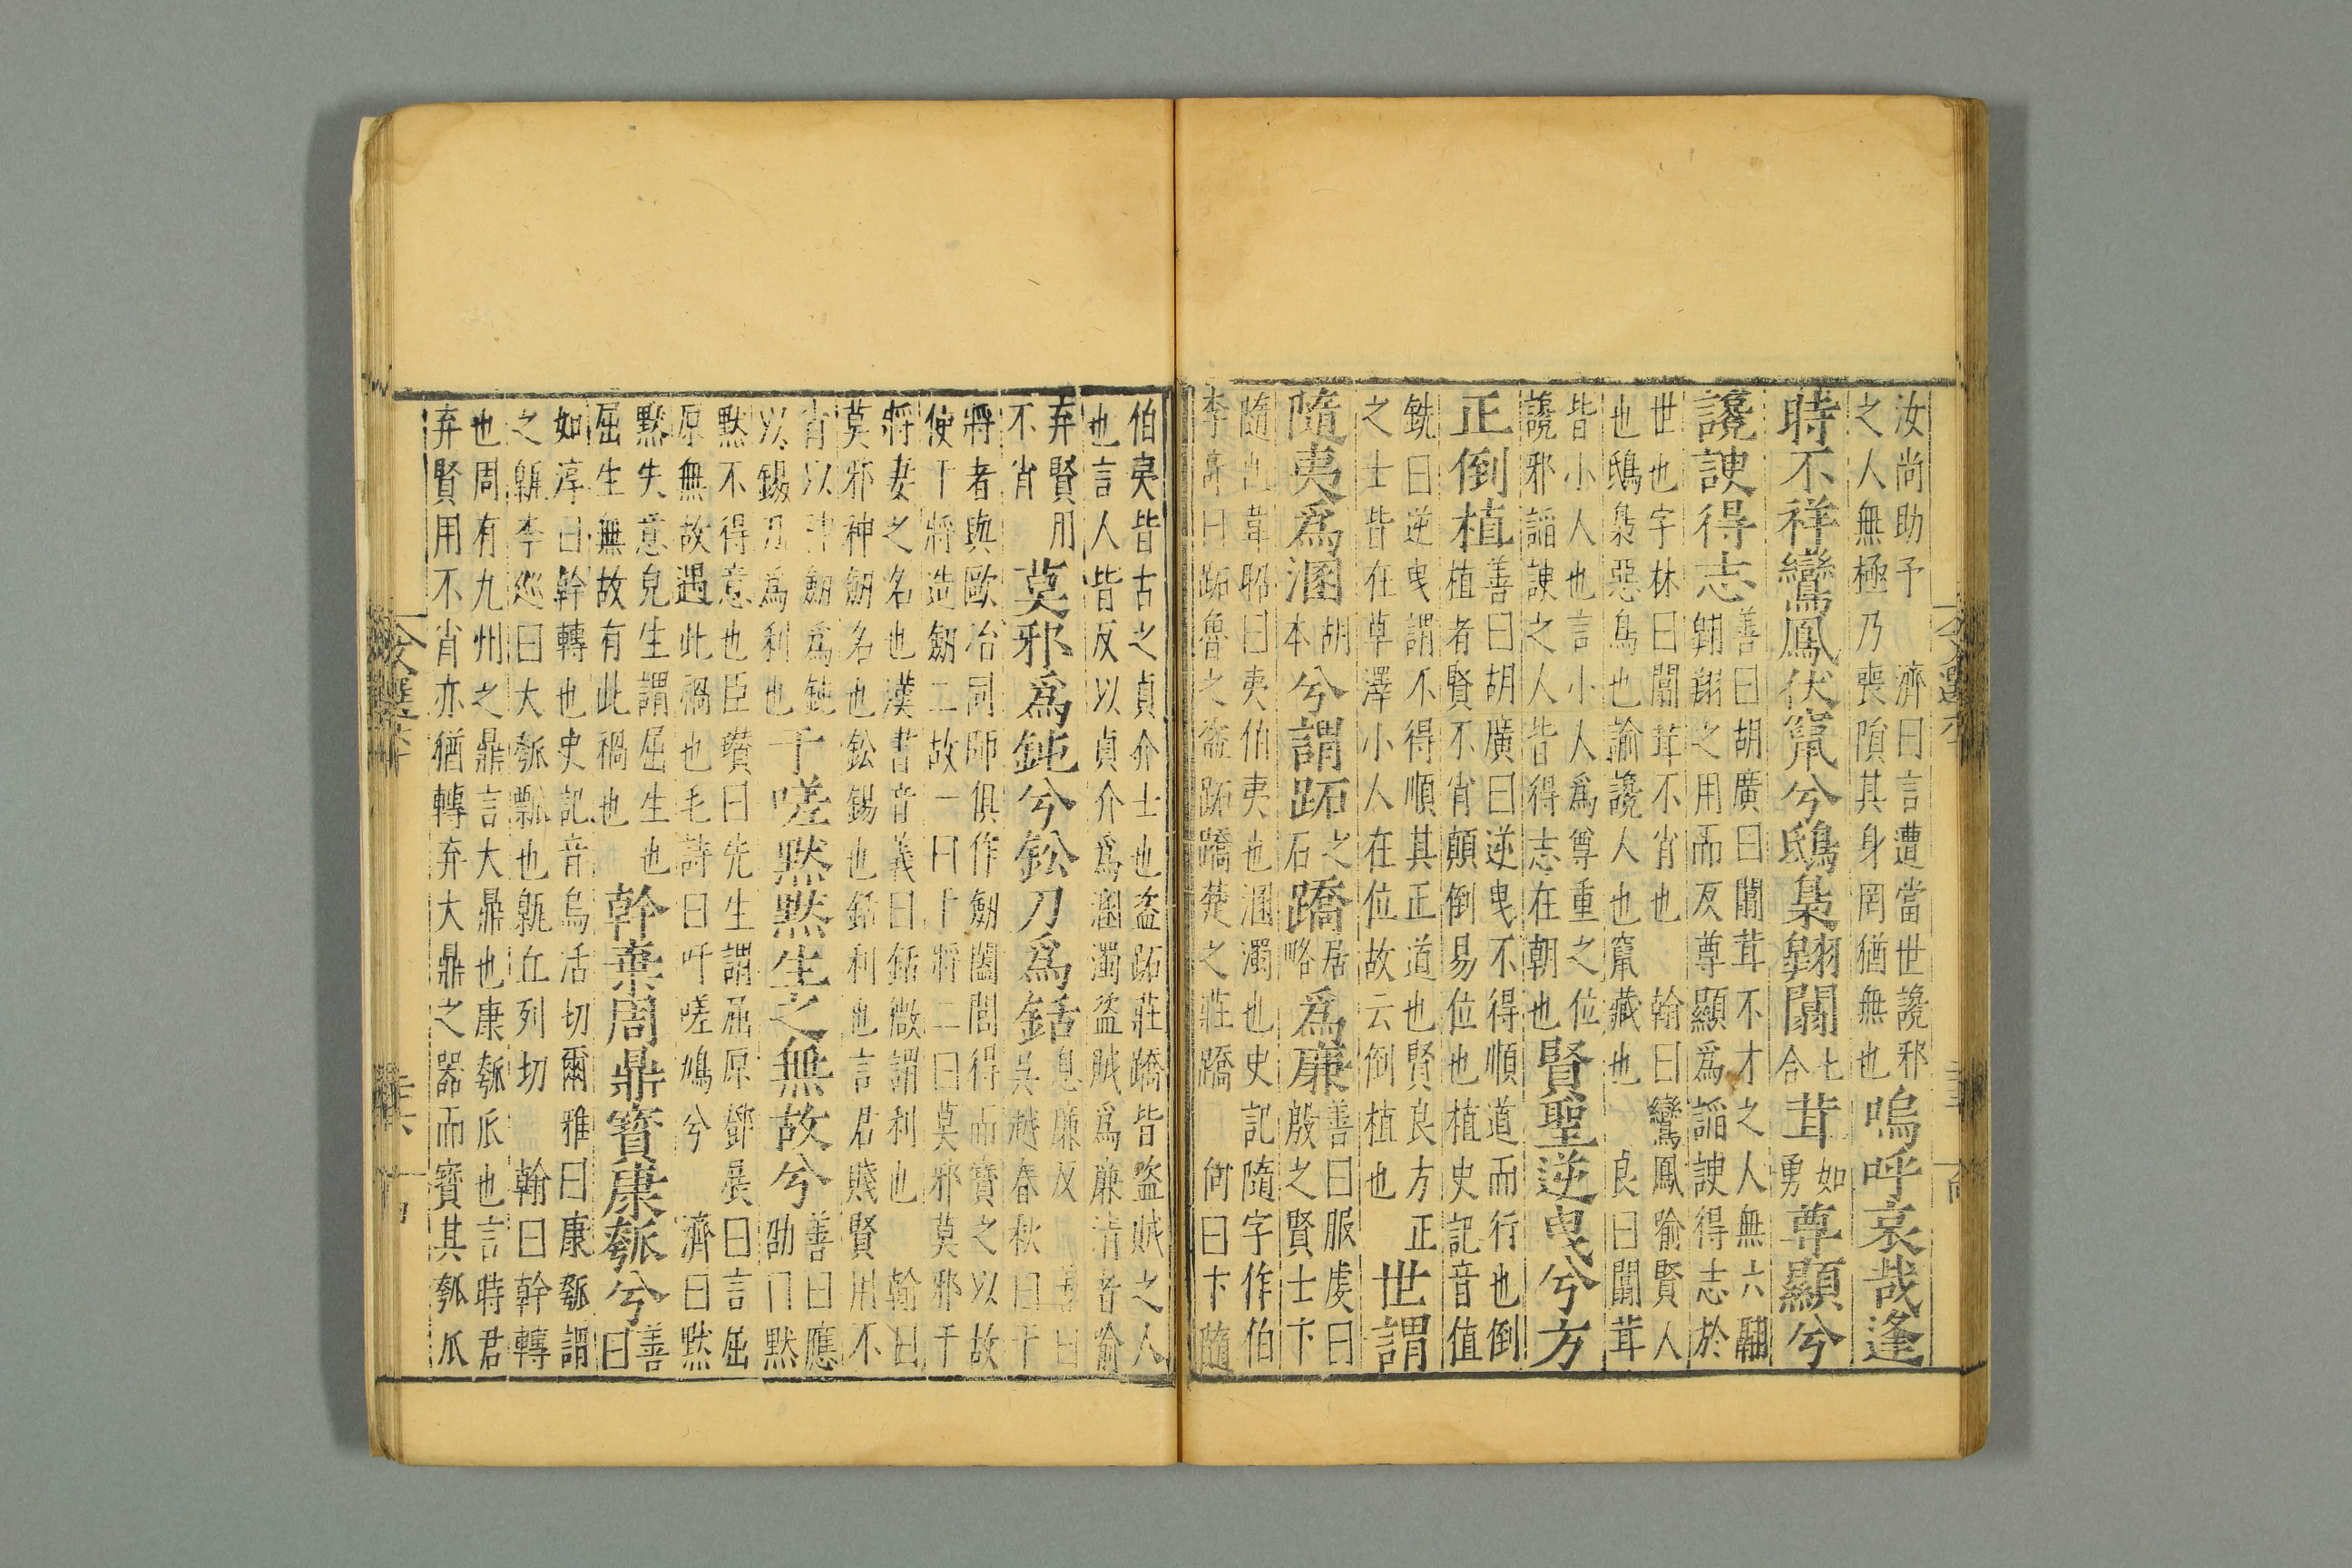 汝尚助予　濟曰言遭當世讒邪
之人無極乃喪隕其身罔猶無也
嗚呼哀哉逢
時不祥鸞鳳伏竄兮鴟梟翱闒
合七
茸
勇如
尊顯兮
讒諛得志
善曰胡廣曰闒茸不才之人無六翮
翱翔之用而反尊顯爲諂諛得志於
世也字林曰闒茸不肖也　翰曰鸞鳳喻賢人
也鴟梟惡鳥也諭讒人也竄藏也　良曰闒茸
皆小人也言小人爲尊重之位
讒邪諂諛之人皆得志在朝也
賢聖逆曳兮方
正倒植
善曰胡廣曰逆曳不得順道而行也倒
植者賢不肖顛倒易位也植史記音值
銑曰逆曳謂不得順其正道也賢良方正
之士皆在草澤小人在位故云倒植也
世謂
隨夷爲溷
胡
本
兮謂跖
之
石
蹻
居
略
爲廉
善曰服虔曰
殷之賢士卞
隨也韋昭曰夷伯夷也溷濁也史記隨字作伯
李奇曰跖魯之盜跖蹻楚之莊蹻　向曰卞隨
伯夷皆古之貞介士也盜跖莊蹻皆盜賊之人
也言人皆反以貞介爲溷濁盜賊爲廉清者喻
弃賢用
不肖
莫邪爲鈍兮鈆刀爲銛
息廉反　善曰
吳越春秋曰干
將者與歐冶同師俱作劒闔閭得而寶之以故
使干將造劒二故一曰干將二曰莫邪莫邪干
將妻之名也漢書音義曰銛徹謂利也　翰曰
莫邪神劒名也鈆錫也銛利也言君賤賢用不
肖以神劒爲鈍
以錫刀爲利也
于嗟黙黙生之無故兮
善曰應
劭曰黙
黙不得意也臣瓚曰先生謂屈原鄧展曰言屈
原無故遇此禍也毛詩曰吁嗟鳩兮　濟曰黙
黙失意皃生謂屈生也
屈生無故有此禍也
斡棄周鼎寶康瓠兮
善
曰
如淳曰斡轉也史記音烏活切爾雅曰康瓠謂
之甈李巡曰大瓠瓢也甈丘列切　翰曰斡轉
也周有九州之鼎言大鼎也康瓠瓜也言時君
弃賢用不肖亦猶轉弃大鼎之器而寶其瓠瓜